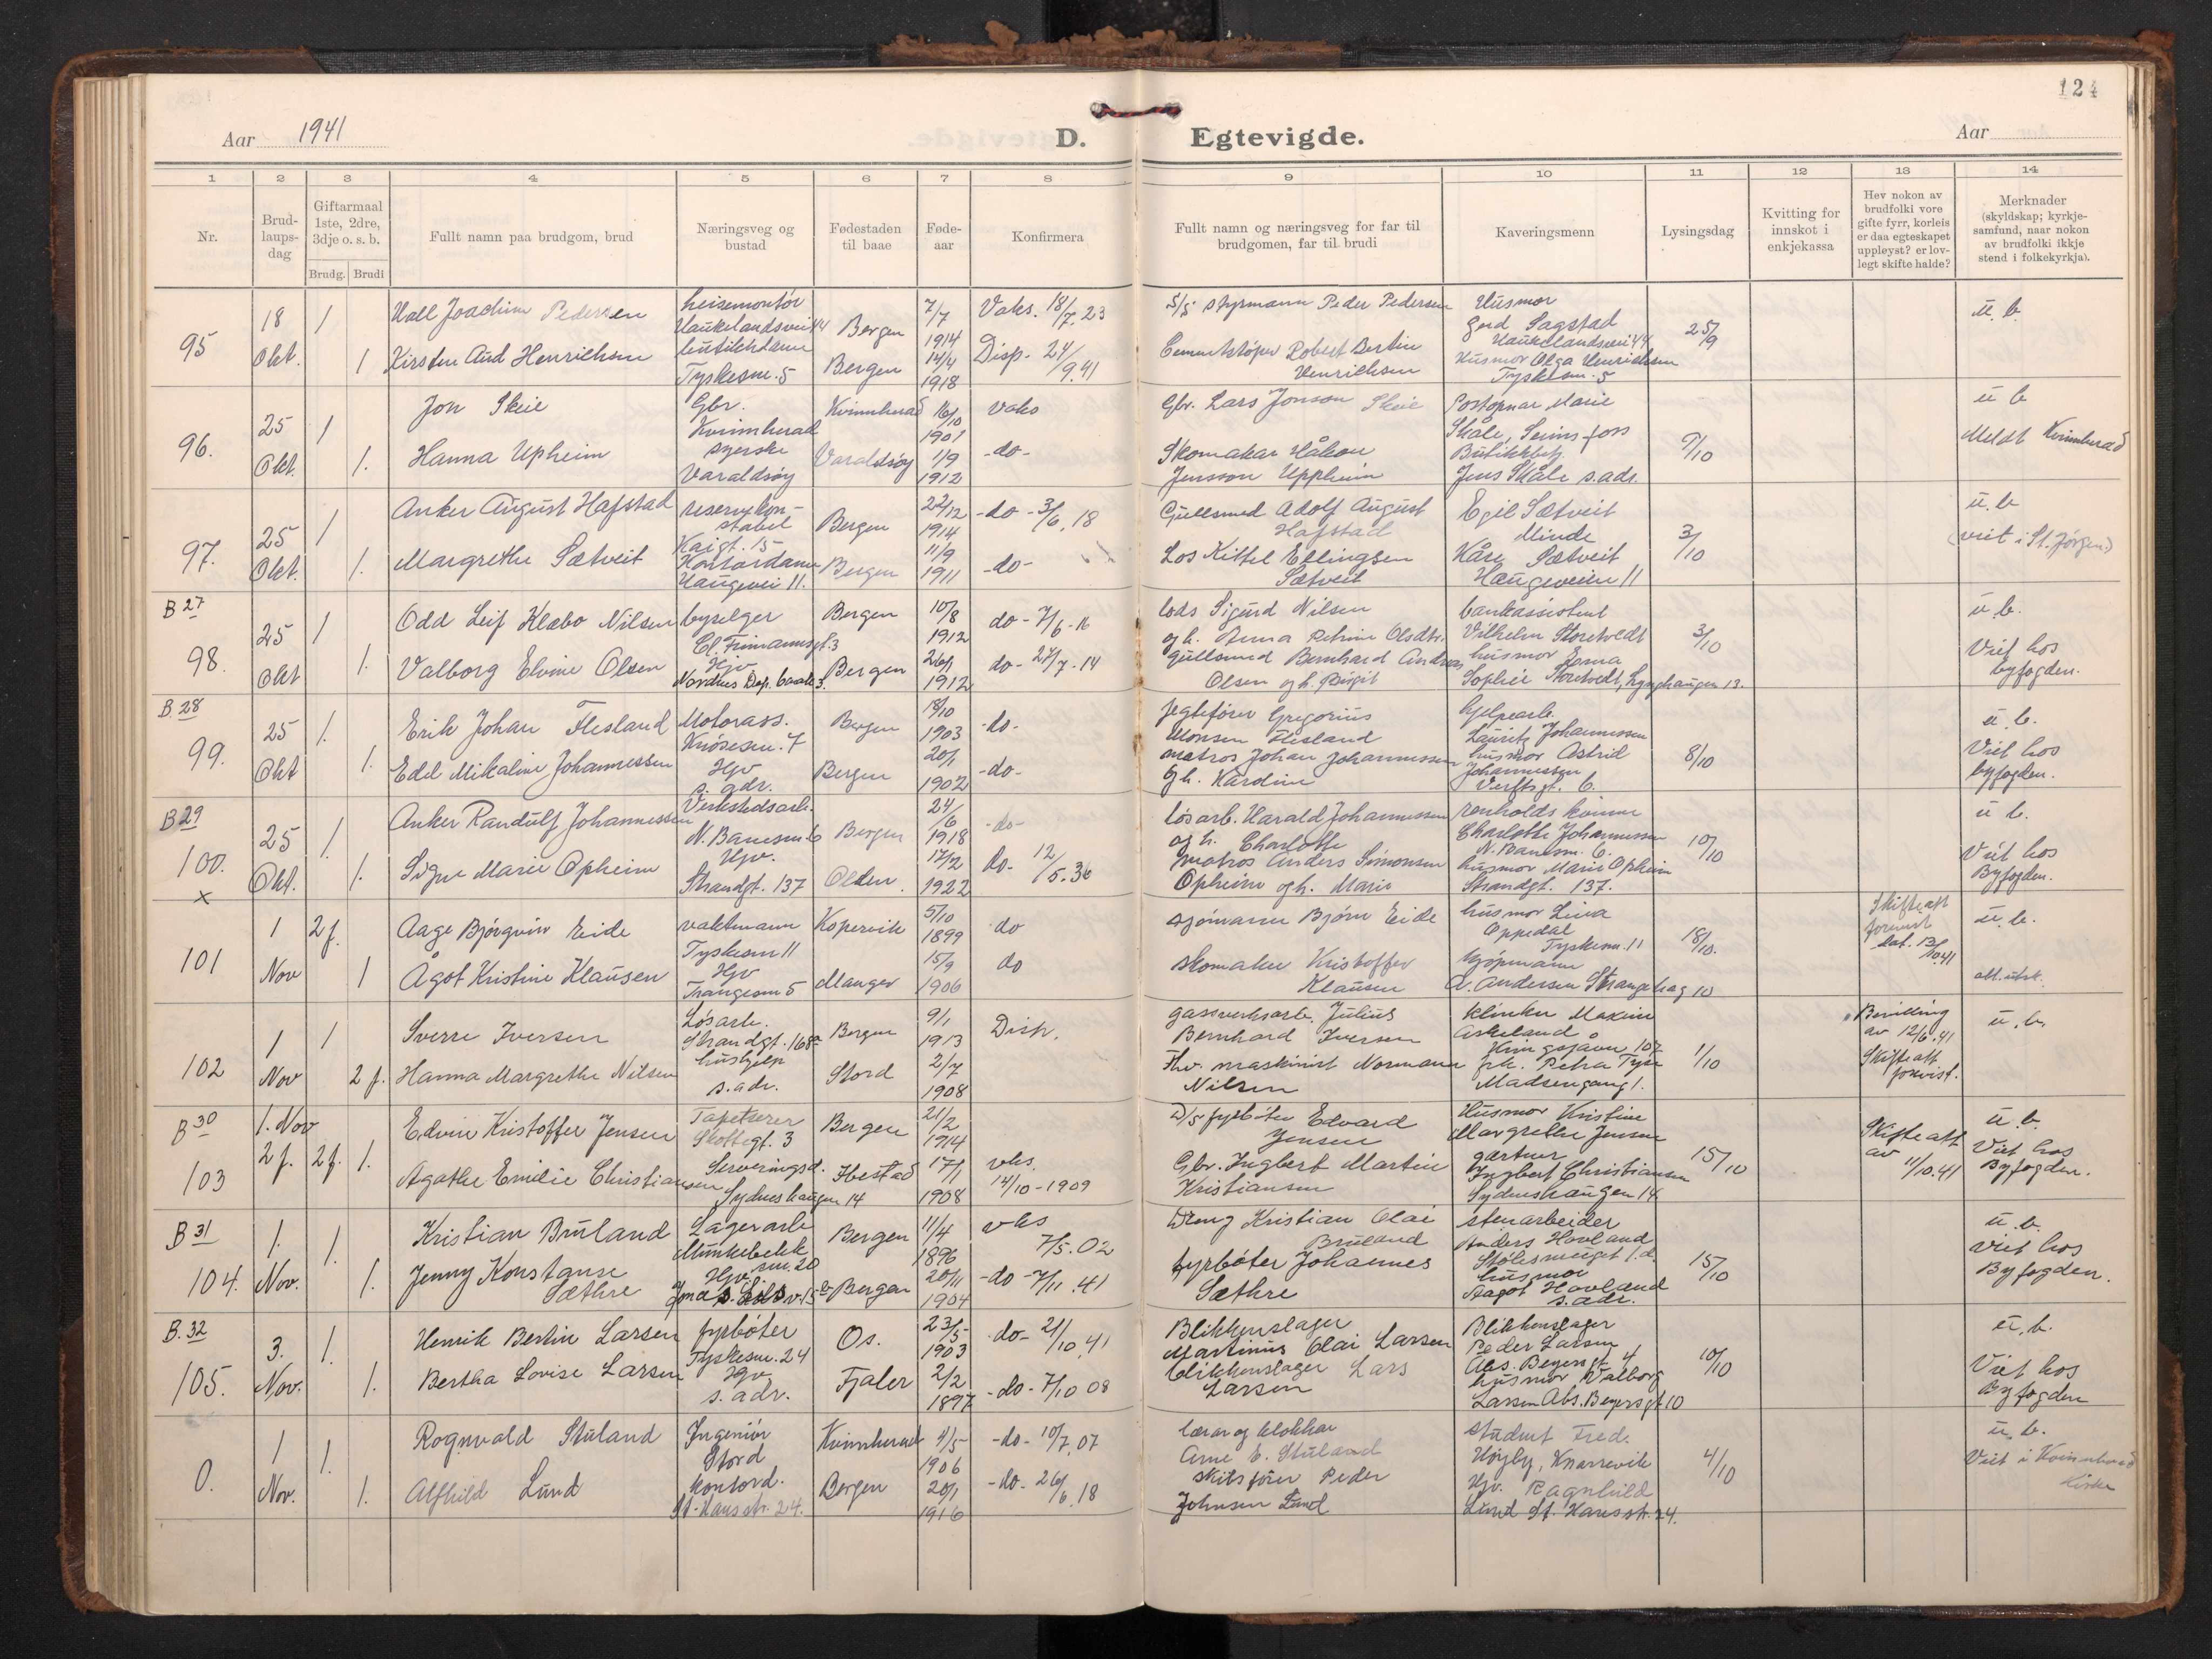 124
Aar 1941
D. Egtevigde.
Aar
1 2 3 4 5 6 7 8 9 10 11 12 13 14
Nr.
Brud-
laups-
dag
Giftarmaal
1ste, 2dre,
3dje o. s. b.
Brudg. Brudi
Fullt namn paa brudgom, brud
Næringsveg og
bustad
Fødestaden
til baae
Føde-
aar
Konfirmera
Fullt namn og næringsveg for far til
brudgomen, far til brudi
Kaveringsmenn
Lysingsdag
Kvitting for
innskot i
enkjekassa
Hev nokon av
brudfolki vore
gifte fyrr, korleis
er daa egteskapet
uppløyst? er lov-
legt skifte halde?
Merknader
(skyldskap; kyrkje-
samfund, naar nokon
av brudfolki ikkje
stend i folkekyrkja).
95
18
Okt.
1
1
Hall Joachim Pedersen
heisemontør
Haukelandsvei 44
Bergen
7/7
1914
Vaks. 18/7.23
S/S styrmann Peder Pedersen
Husmor
Gerd Sagstad
Haukelandsvei 44
25/9
u.b.
Kirsten Aud Henrichsen
butikkdame
Tyskesm. 5
Bergen
14/4
1918
Disp. 24/9.41
Robert Bertin
Henrichsen
Husmor Olga Henrichsen
Tyskesm. 5
96.
25
Okt.
1
1.
Jon Skeie
Gbr.
Kvinnherad
Kvinnherad
16/10
1901
vaks
Gbr. Lars Jonson Skeie
Postopnar Marie
Skåle, Seimsfoss
9/10
u b
Meldt Kvinnherad
Hanna Upheim
syerske
Varaldsøy
Varaldsøy
1/9
1912
-do-
Skomakar Håkon
Jensson Uppheim
Butikkbetj.
Jens Skåle s.ads.
97.
25
Okt.
1
1.
Anker August Hafstad
reservekon-
stabel
Kaigt. 15
Bergen
22/12
1914
-do- 3/6.18
Gullsmed Adolf August
Hafstad
Egil Sætveit
Minde
3/10
u.b
(viet i St. Jørgen)
Margrethe Sætveit
Kontordame
Haugevei 11.
Bergen
11/9
1911
-do-
Los Kittel Ellingsen
Sætveit
Kåre Sætveit
Haugeveien 11
B 27
98.
25
Okt
1
1.
Odd Leif Klæbo Nilsen
byselger
Cl. Frimannsgt. 3
Bergen
10/8
1912
do - 7/6-16
lods Sigurd Nilsen
og h. Anna Petrine Olsdtr.
bankassistent
Vilhelm Storetvedt
3/10
u.b.
Viet hos
byfogden.
Valborg Elvine Olsen
Hjv
Nordnes Dep. bakke 3.
Bergen
26/1
1912
do- 27/7-14
gullsmed Bernhard Andreas
Olsen og h. Birgit
husmor Emma
Sophie Storetvedt, Lynghaugen 13.
B.28
99.
25
Okt
1.
1.
Erik Johan Flesland
Motorass.
Knøsesm. 7
Bergen
18/10
1903
-do-
Jegtefører Gregorius
Monsen Flesland
hjelpearb.
Lauritz Johannessen
8/10
u.b.
Viet hos
byfogden.
Edel Mikaline Johannessen
Hjv
s. adr.
Bergen
20/1
1902
-do-
matros Johan Johannessen
og h. Kardine
husmor Astrid
Johannessen
Verftsgt. 6.
B 29
100.
x
25
Okt.
1.
1.
Anker Randulf Johannessen
Verkstedsarb.
N. Banesm. 6
Bergen
24/6
1918
-do-
løsarb. Harald Johannessen
og h. Charlotte
renholdskvinne
Charlotte Johannessen
N. Banesm. 6.
10/10
u b.
Viet hos
Byfogden.
Signe Marie Opheim
Hjv.
Strandgt. 137
Olden
17/2
1922
do- 12/5.36
matros Anders Simonsen
Opheim og h. Marie
husmor Marie Opheim
Strandgt. 137.
101
1
Nov
2 f.
1
Aage Bjørgvin Eide
vaktmann
Tyskesm 11
Kopervik
5/10
1899
do
sjømann Bjørn Eide
husmor Lina
Oppedal
Tyskesm. 11
18/10.
Skifteatt
forevist
dat. 13/10.41
u.b.
att. utst.
Ågot Kristine Klausen
Hjv
Trangesm 5
Manger
15/9
1906
do
skomaker Kristoffer
Klausen
kjøpmann
A. Andersen Strangehag 10
102
1
Nov
1
2 f.
Sverre Iversen
Løsarb.
Strandgt. 168a
Bergen
9/1
1913
Disp.
gassverksarb. Julius
Bernhard Iversen
klinker Maxim
Askeland
107
1/10
Bevilling
av 12/6.41
Skifteatt
forevist.
u.b.
Hanna Margrethe Nilsen
hushjelp
s.adr.
Stord
2/7
1908
Fhv. maskinist Normann
Nilsen
frk. Petra
Madsengang 1.
B 30
103
1. Nov
2 f. 2 f. 1.
Edvin Kristoffer Jensen
Tapetserer
Skottegt. 3
Bergen
21/2
1914
D/S fyrbøter Edvard
Jensen
Husmor Kristine
Margrethe Jensen
15/10
Skifteatt
av
11/10.41
u.b.
Viet hos
Byfogden.
Agathe Emilie Christiansen
Serveringsd.
Sydneshaugen 14
Ibestad
17/1
1908
vks.
14/10-1909
Gbr. Ingbert Martin
Kristiansen
gartner
Ingbert Christiansen
Sydneshaugen 14.
B 31
104.
1.
Nov.
1.
1.
Kristian Bruland
Lagerarb
Munkebekk
sm. 20
Bergen
11/4
1896
vks
7/5.02
Dreng Kristian Olai
Bruland
stenarbeider
Anders Hovland
Stølesmuget 1.d.
15/10
u.b.
Viet hos
Byfogden.
Jenny Konstanse
Sæthre
Hjv.
Jonas Lies v. 15 b
Bergen
20/11
1904
-do- 7/11.41
fyrbøter Johannes
Sæthre
husmor
Aagot Hovland
s.adr.
B. 32
105.
3.
Nov.
1.
1.
Henrik Bertin Larsen
fyrbøter
Tyskesm. 24
Os.
23/5
1903
do- 21/10.41
Blikkenslager
Martinus Olai Larsen
Blikkenslager
Peder Larsen
Abs. Beyersgt. 4
10/10
u.b.
Viet hos
Byfogden
Bertha Lovise Larsen
Hjv
s.adr.
Fjaler
2/2
1897
-do- 7/10 08
blikkenslager Lars
Larsen
husmor Valborg
Larsen Abs. Beyersgt 10
0.
1
Nov.
1.
1.
Rognvald Stuland
Ingeniør
Stord
Kvinnherad
4/5
1906
-do- 10/7.07
lærar og klokkar
Arne E. Stuland
student Fred.
Høyby, Knarrevik
4/10
u.b.
Viet i Kvinnherad
Kirke
Alfhild Lund
kontord.
St. Hansstr. 24.
Bergen
20/1
1916
-do- 26/6.18
skipsfører Peder
Johnsen Lund
Hjv. Ragnhild
Lund St. Hansstr. 24.